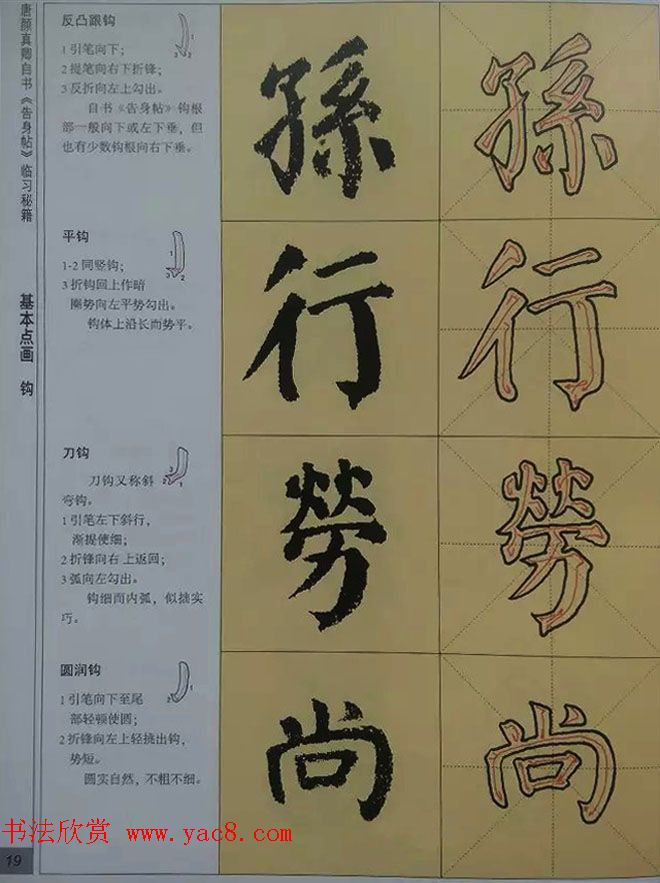 唐颜真卿自书《告身帖》临习秘籍
基本点画 钩
反凸跟钩
1 引笔向下；
2 提笔向右下折锋；
3 反折向左上勾出。
自书《告身帖》钩根
部一般向下或左下垂，但
也有少数钩根向右下垂。
孫
孫
平钩
1-2 同竖钩；
3 折钩回上作暗
圈势向左平势勾出。
钩体上沿长而势平。
行
行
刀钩
刀钩又称斜
弯钩。
1 引笔左下斜行，
渐提使细；
2 折锋向右上返回；
3 弧向左勾出。
钩细而内弧，似拙实
巧。
勞
勞
圆润钩
1 引笔向下至尾
部轻顿使圆；
2 折锋向左上轻挑出钩，
势短。
圆实自然，不粗不细。
尚
尚
书法欣赏 www.yac8.com
19